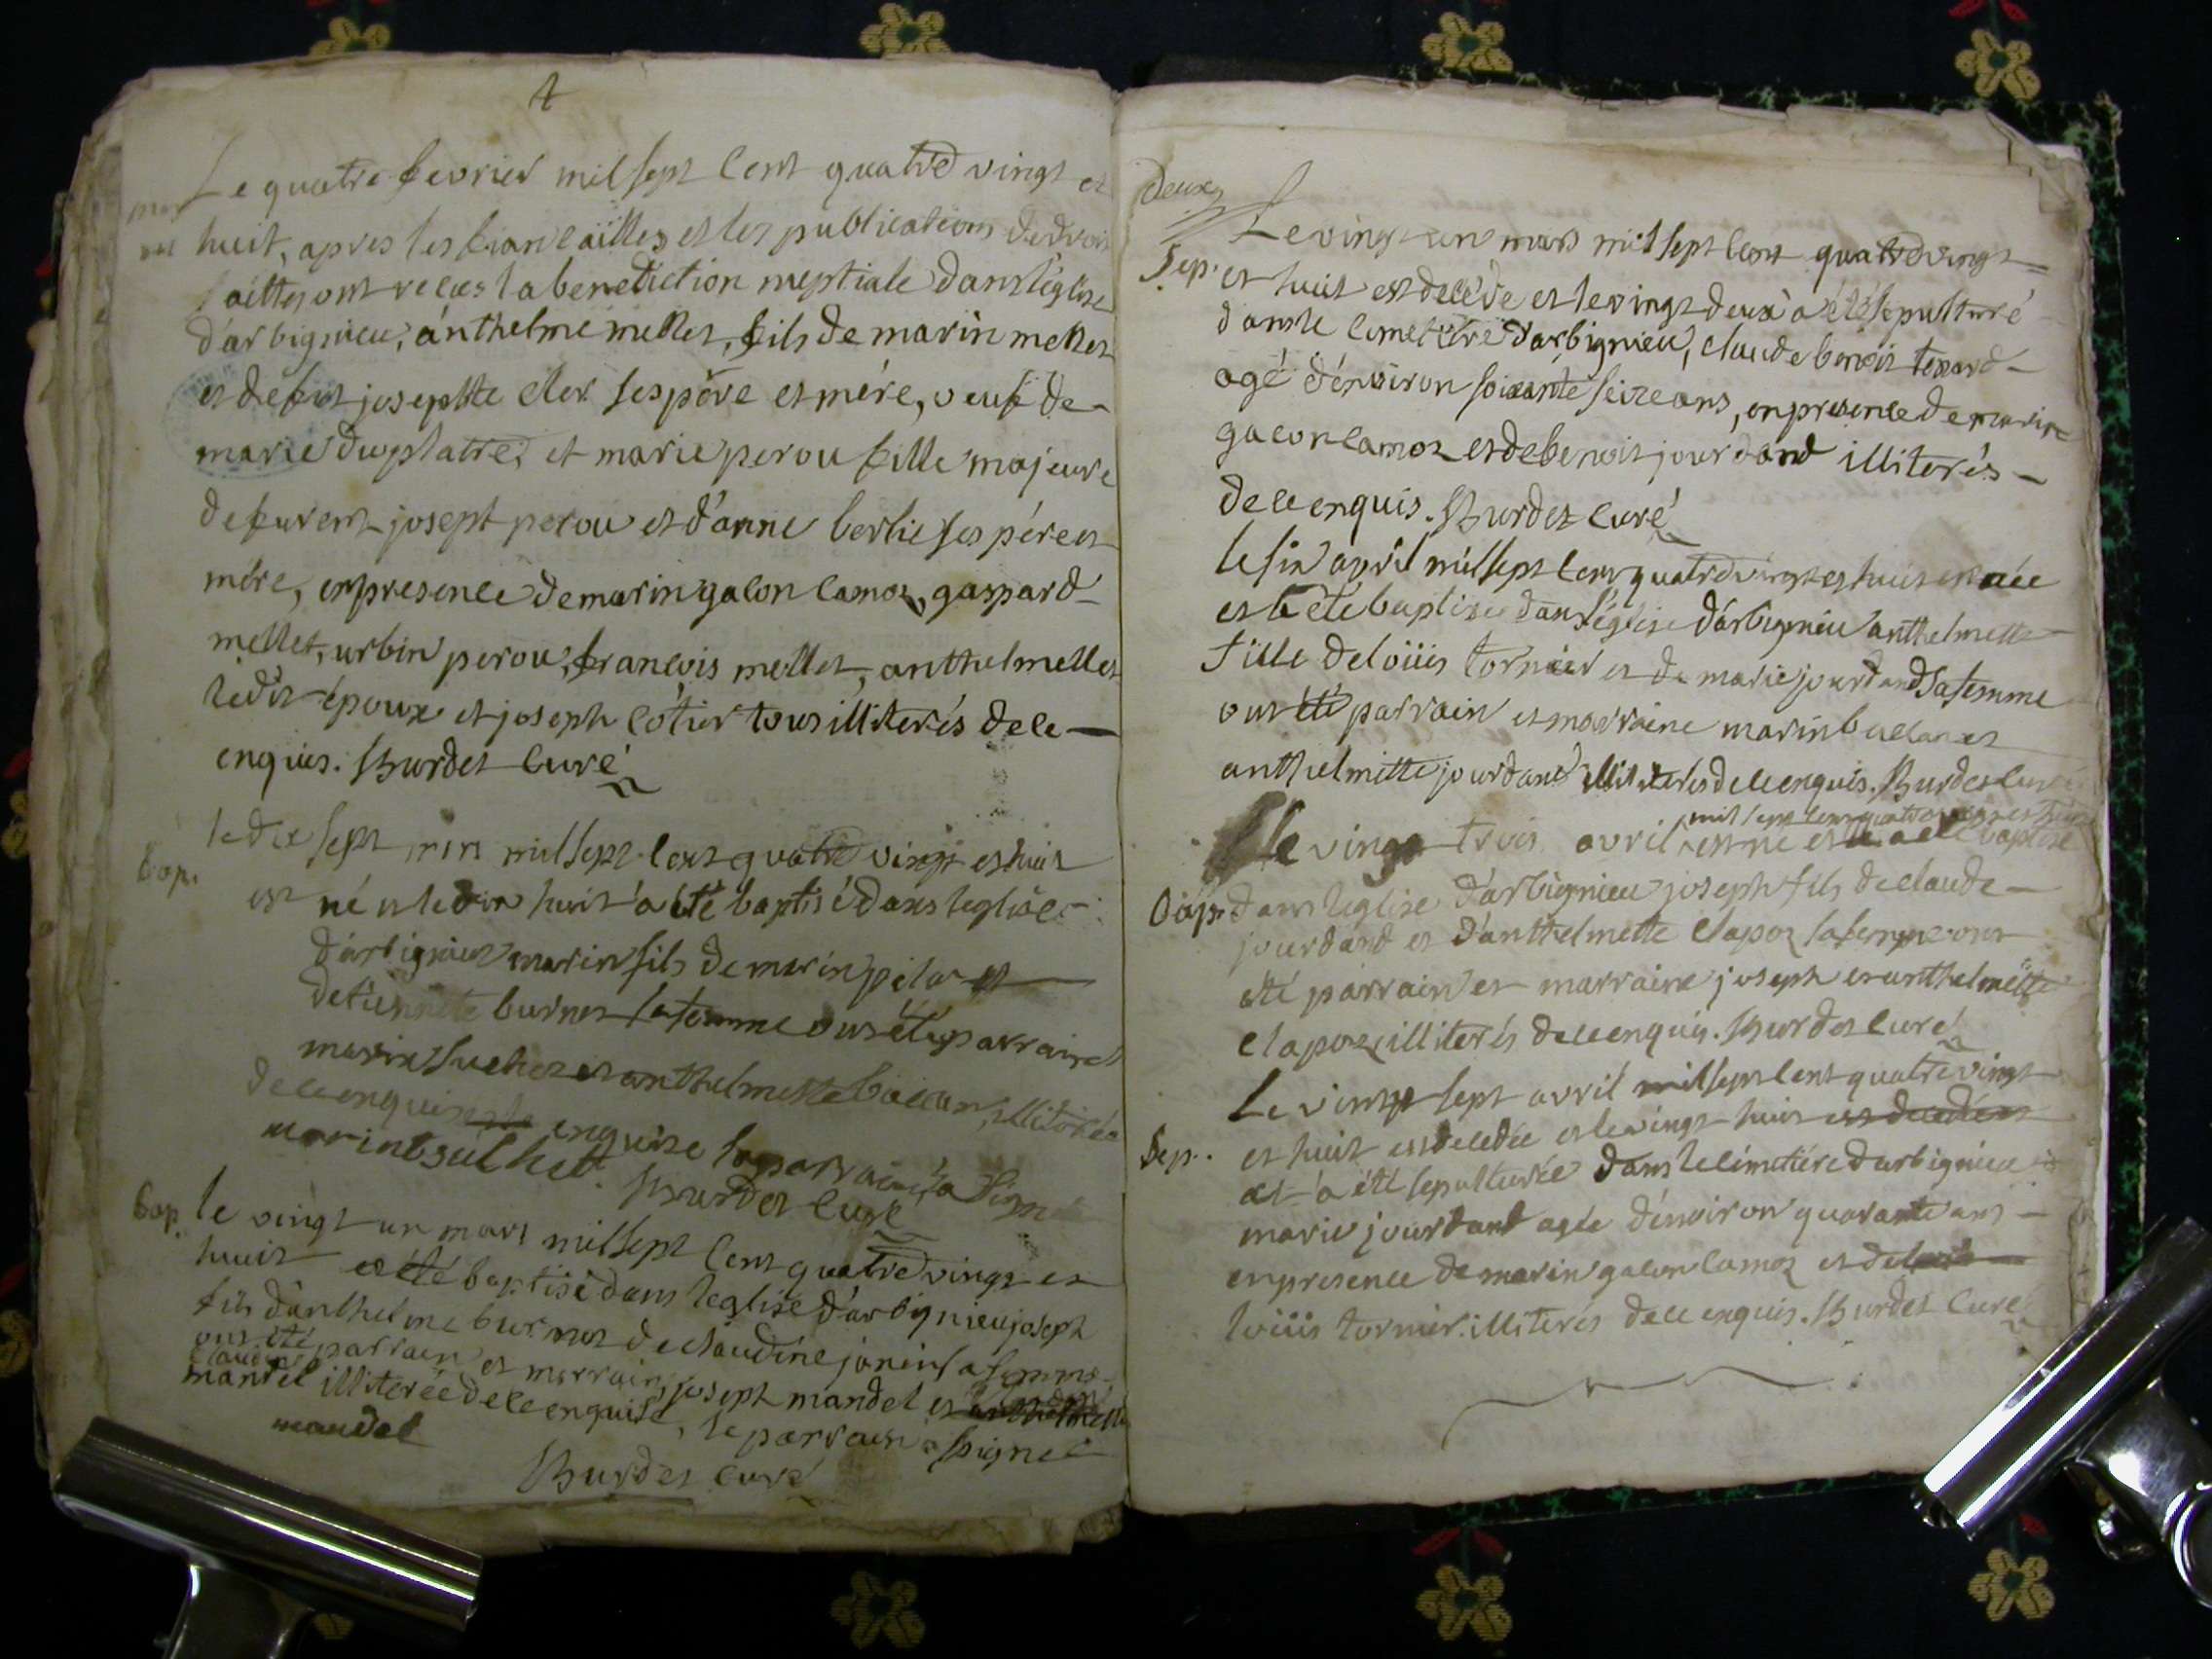 Le quatre fevrier mil sept cent quatre vingt et
mar
huit, apres les fiancailles et les publications de droit
faittes ont reçus la benediction nuptiale dans l'église
d'arbignieu, ánthelme mellet, fils de marin mellet
et de fut josephte cler ses pére et mére, veuf de
marie duplatre, et marie perou fille majeure
de furent joseph perou et d'anne berlie ses pére et
mére, en presence de marin galon lamoz, gaspard
mellet, urbin perou, francois mellet, anthelme mellet
ledit époux et joseph cotier tous illiterés de ce
enquis. Burdet curé
bap.
le dix sept mars mil sept cent quatre vingt et huit
est né et le dix huit a été baptisé dans leglise
d'arbignieu marin fils de marin pela et
detiennete burnet sa femme ont été parrain et
marin suchet et anthelmette ballan, illiterée
de ce enquise le parrain a signé
marin suchet. Burdet curé
bap.
le vingt un mars mil sept cent quatre vingt et
huit a été baptisé dans leglise d'arbignieu joseph
fils d'anthelme burnet de claudine janin sa femme
ont été parrain et marraine joseph mandel et
claudine
mandel illiterée de ce enquise, le parrain a signé
mandel
Burdet curé
deux
Le vingt un mars mil sept cent quatre vingt
Sep.
et huit est decéde et le vingt deux a été sepulturé
dans le cimetière d'arbignieu, claude benoit tenard
agé d'environ soixante seize ans, en presence de marin
galon lamoz et de benoit jourdand illiterés
de ce enquis. Burdet curé
le six avril mil sept cent quatre vingt et huit est née
et a été baptisée dans l'église d'arbignieu anthelmette
fille de loüis tornier et de marie jourdand sa femme
ont été parrain et marraine marin ballan et
anthelmette jourdand illiterés de ce enquis. Burdet curé
mil sept cent quatre vingt et huit
le vingt trois avril est né et a été baptisé
bap.
dans leglise d'arbignieu joseph fils de claude
jourdand et d'anthelmette clapoz sa femme ont
été parrain et marraine joseph et anthelmette
clapoz illiterés de ce enquis. Burdet curé
Le vingt sept avril mil sept cent quatre vingt
Sep.
et huit est decedée et le vingt huit est decedée et
et a été sepulturée dans le cimetiére d'arbignieu
marie jourdand agée d'environ quarante ans
en presence de marin galon lamoz et de
loüis tornier. illiterés de ce enquis. Burdet curé